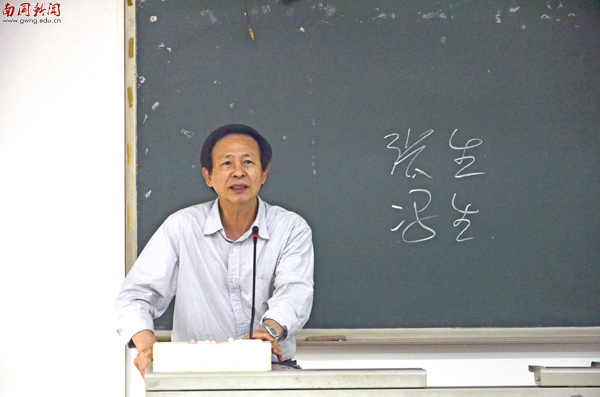 南国新闻
www.gwng.edu.cn
张生
冯生